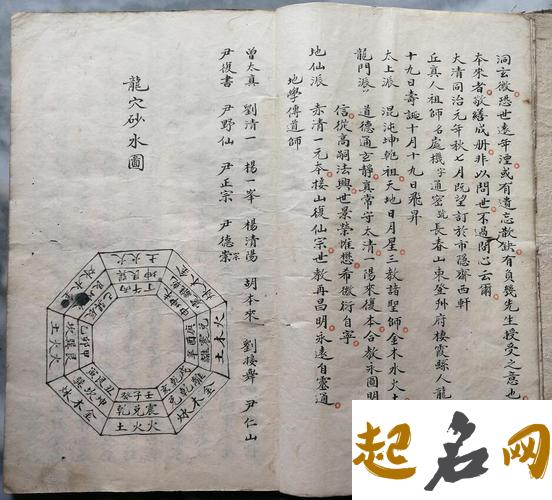 洞玄微恐世遠年湮或有遺忘散缺有負幾先生授受之意也
本來者敬繕成册非以問世不過閒心云爾
大清同治元年秋七月既望訂於市隱齋西軒
丘真人祖師名處機字通密號長春山東登州府棲霞縣人龍
十九日壽誕十月十九日飛昇
太上派 混沌乾坤祖天地日月星三教諸聖師金木水火土
龍門派 道德通玄靜真常守太清一陽來復本合教永圓明
信從高嗣法興世景榮惟懋希微衍自寧
地仙派 赤清一元本接山復仙宗世教再昌明永遠自靈通
地學傳道師
曾太真 劉清一 楊一峯 楊清陽 胡本來 劉接舜 尹仁山
尹復書 尹野仙 尹正宗 尹德崇
龍穴砂水圖
土火火
火木土
金木水
土火火
乾兌震
壬子癸
丁午丙
起名网